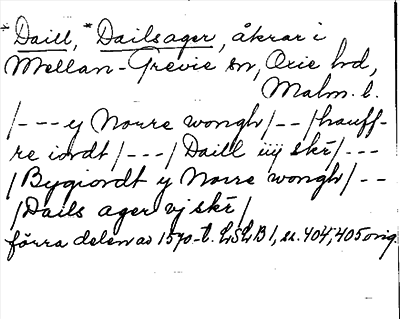 *Daill, *Dailsager, åkrar i
Mellan-Grevie sn, Oxie hd,
Malm. l.
/--- y Norre wongh/--/hauff-
re iordt/---/Daill iiij skr/---
/Bygiordt y Norre wongh/--
/Dails ager vj skr/
förra delen av 1570-t. LSLB 1, ss. 404, 405 orig.